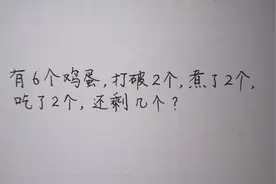 有6个鸡蛋,打破2个,煮了2个,
吃了2个,还剩几个?